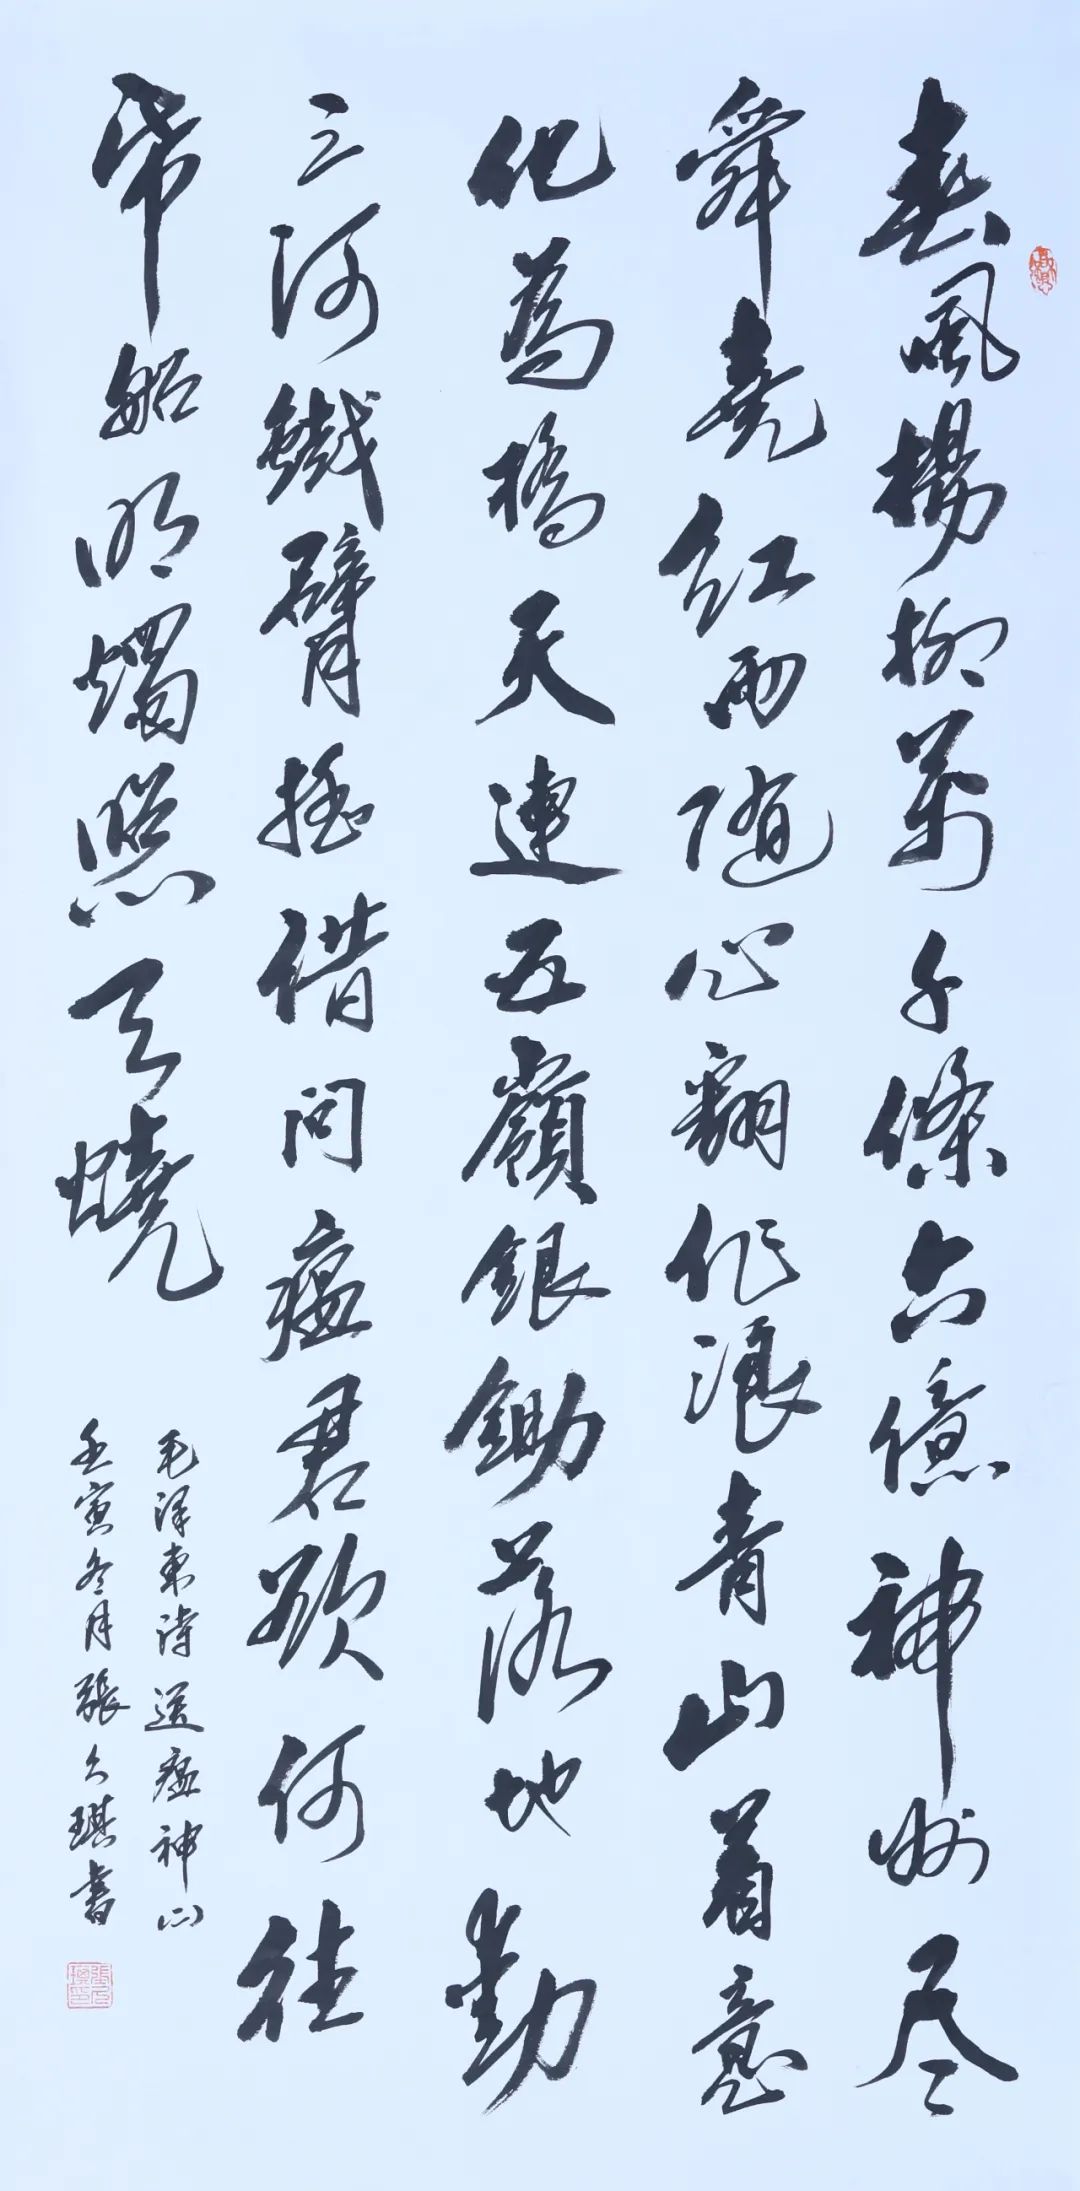 春風楊柳萬千條六億神州尽
舜堯紅雨隨心翻作浪青山着意
化為橋天連五嶺銀鋤落地動
三河鐵臂搖借問瘟君欲何往
帋船明燭照天燒
毛澤東詩送瘟神
壬寅冬月張久琪書